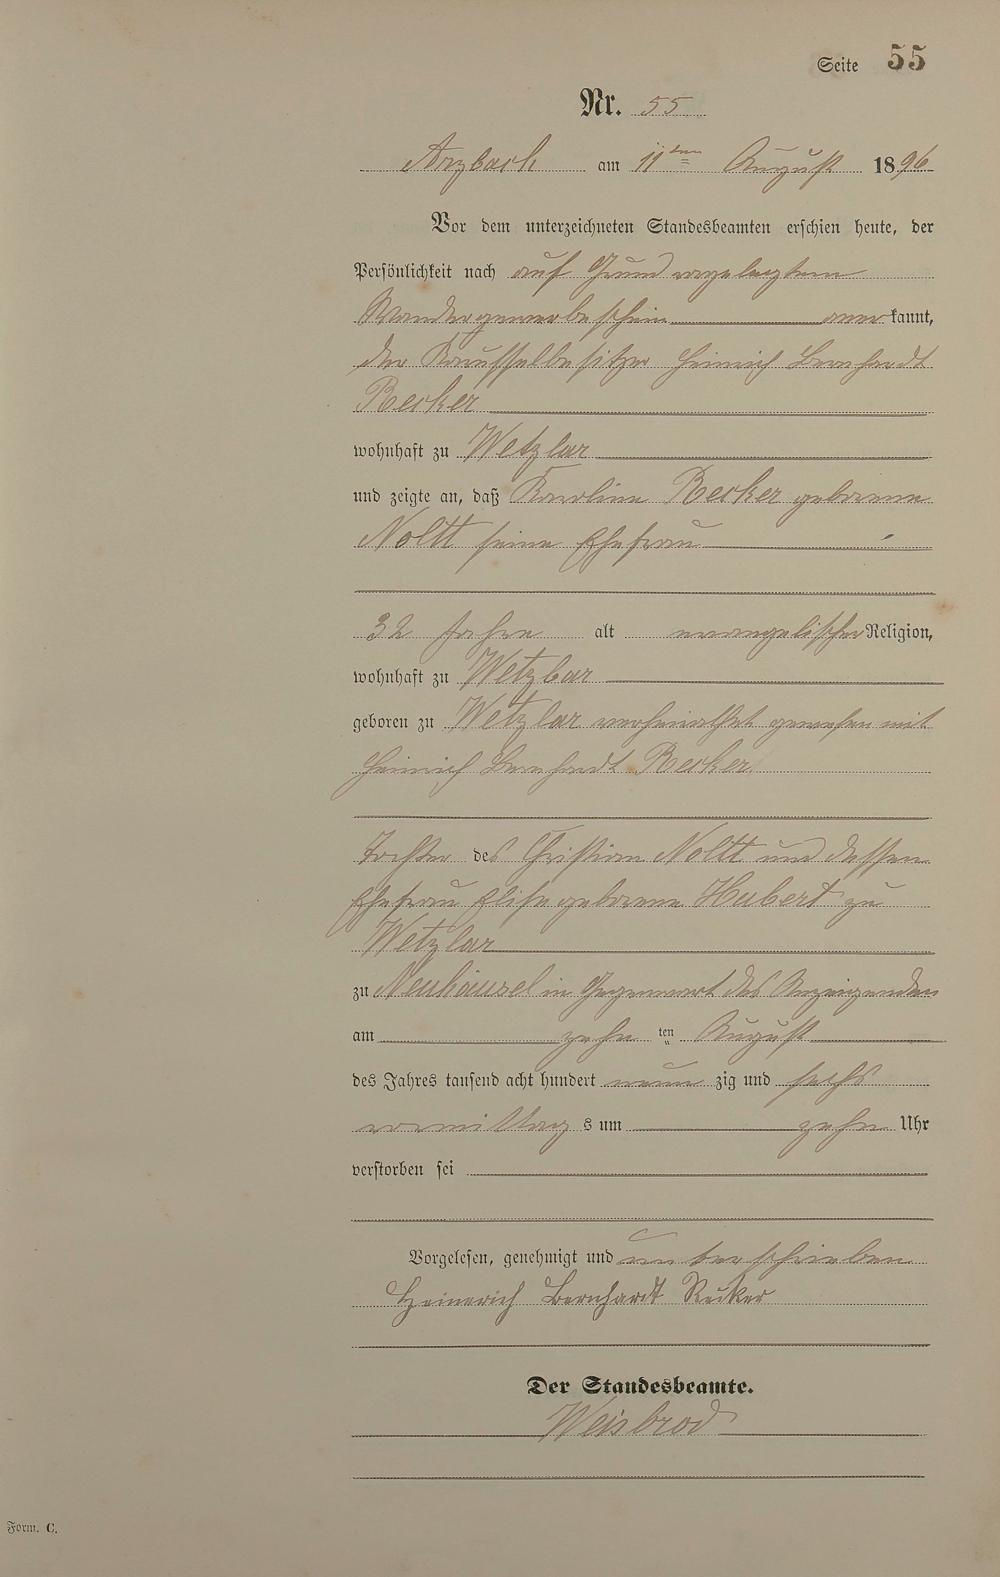 Seite 55
Nr. 55
Arzbach am 11ten August 1896
Vor dem unterzeichneten Standesbeamten erschien heute, der
Persönlichkeit nach auf Grund vorgelegtem
Wandergewerbeschein anerkannt,
der Karussellbesitzer Heinrich Bernhardt
Recker
wohnhaft zu Wetzlar
und zeigte an, daß Karoline Recker geborene
Noltt seine Ehefrau
32 Jahre alt evangelischer Religion,
wohnhaft zu Wetzlar
geboren zu Wetzlar verheirathet gewesen mit
Heinrich Bernhardt Recker
Tochter des Christian Noltt und dessen
Ehefrau Elise geborene Hubert zu
Wetzlar
zu Neuhäusel in Gegenwart des Anzeigenden
am zehn ten August
des Jahres tausend acht hundert neun zig und sechs
vormittag s um zehn Uhr
verstorben sei
Vorgelesen, genehmigt und unterschrieben
Heinerich Bernhardt Recker
Der Standesbeamte.
Weisbrod
Form. C.